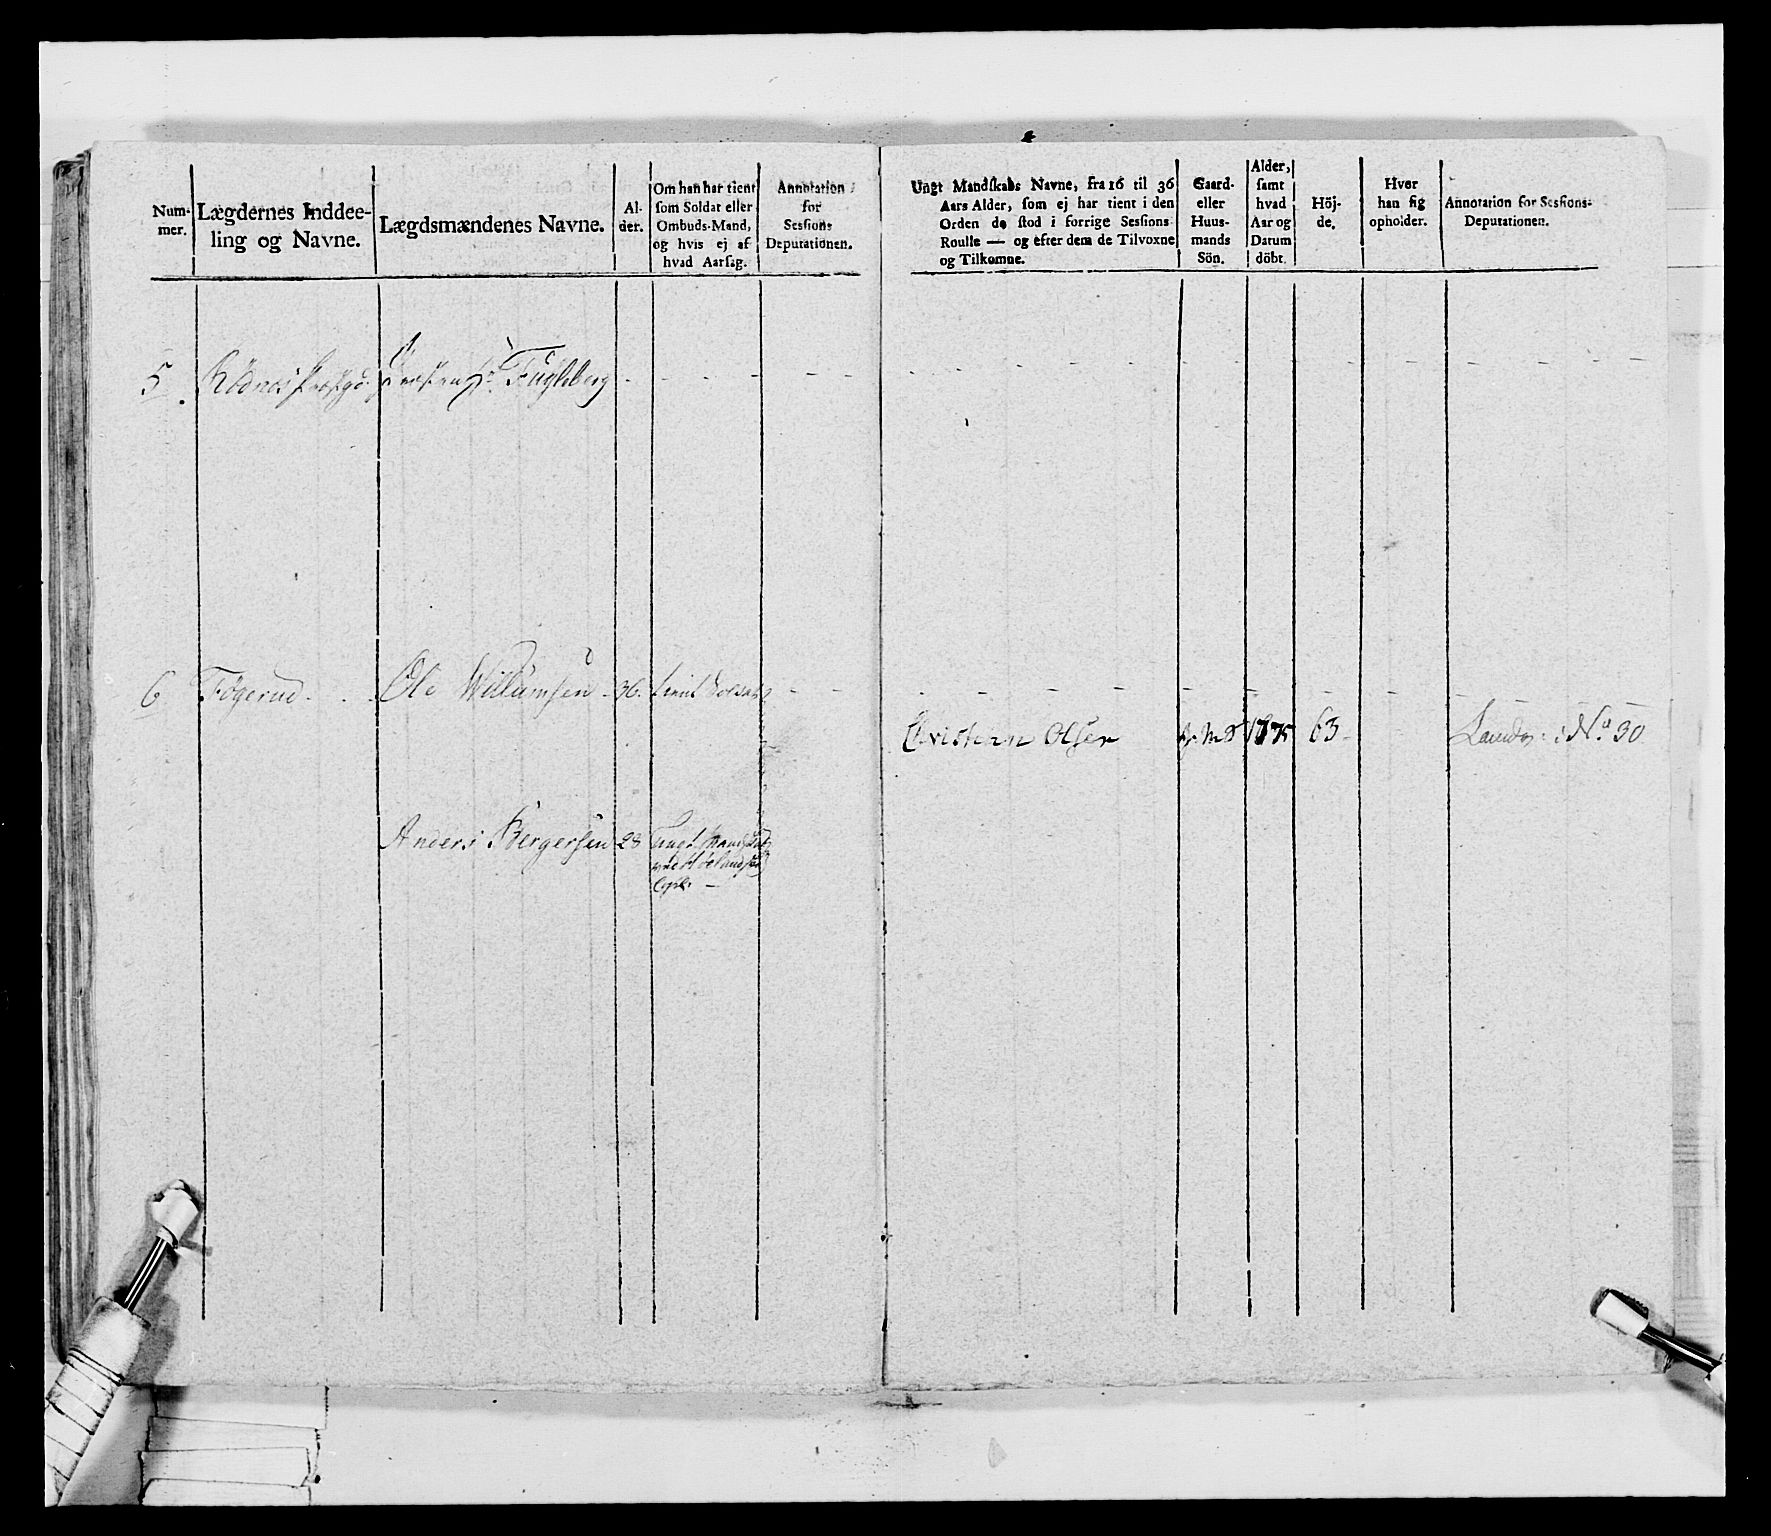 Num-
mer.
Lægdernes Inddee-
ling og Navne.
Lægdsmændenes Navne.
Al-
der.
Om han har tient
som Soldat eller
Ombuds-Mand,
og hvis ej af
hvad Aarsag.
Annotation
for
Sessions
Deputationen.
Ungt Mandskabs Navne, fra 16 til 36
Aars Alder, som ej har tient i den
Orden de stod i forrige Sessions
Roulle — og efter dem de Tilvoxne
og Tilkomne.
Gaard-
eller
Huus-
mands
Sön.
Alder,
samt
hvad
Aar og
Datum
döbt.
Höj-
de.
Hvor
han sig
opholder.
Annotation for Sessions-
Deputationen.
5 Rödnes Præstgd. Fugleberg
6 Fögerud Ole Willumsen 36 tient Soldat
Christian Olsen 1775 63 No 30
Anders Bergersen 28 Ungt Mandskab